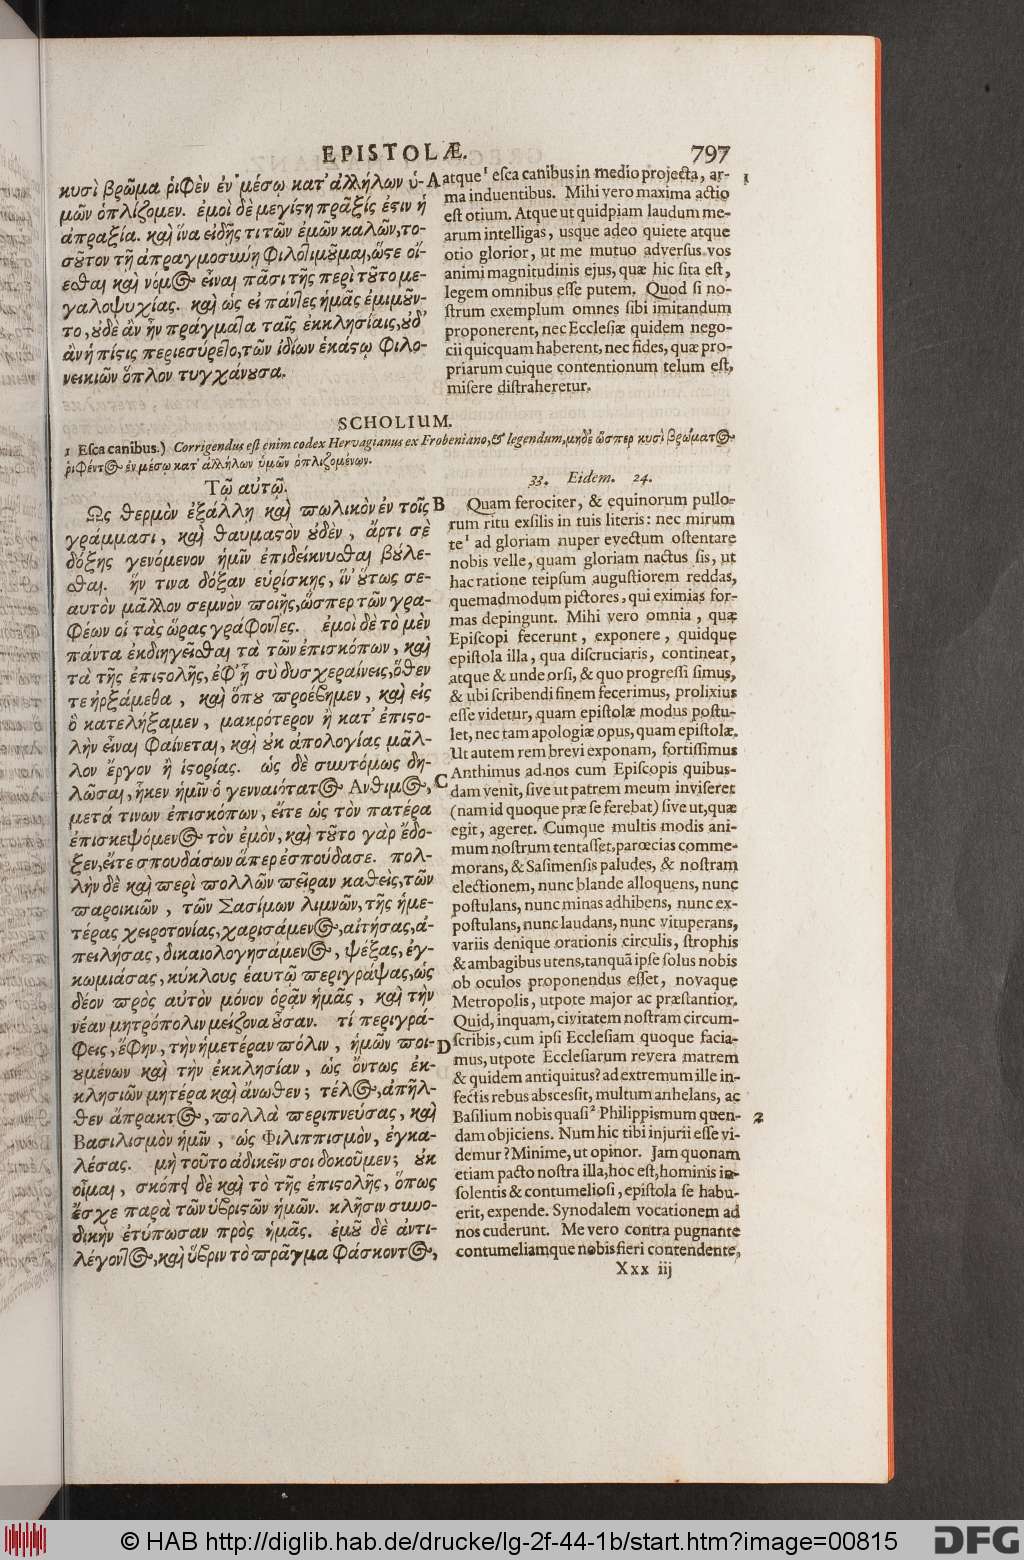 EPISTOLÆ. 797
κυσὶ βρῶμα ῥιφὲν ἐν μέσῳ κατ' ἀλλήλων ὑ-
μῶν ὁπλίζομεν. ἐμοὶ δὲ μεγίστη πρᾶξίς ἐστιν ἡ
ἀπραξία. καὶ ἵνα εἰδῇς τι τῶν ἐμῶν καλῶν, το-
σοῦτον τῇ ἀπραγμοσύνῃ φιλοτιμοῦμαι, ὥστε οἴ-
εσθαι καὶ νόμος εἶναι πᾶσι τῆς περὶ τοῦτο με-
γαλοψυχίας. καὶ ὡς εἰ πάντες ἡμᾶς ἐμιμοῦν-
το, οὐδὲ ἂν ἦν πράγματα ταῖς ἐκκλησίαις, οὐδ'
ἂν ἡ πίστις περιεσύρετο, τῶν ἰδίων ἑκάστῳ φιλο-
νεικιῶν ὅπλον τυγχάνουσα.
A
atque¹ esca canibus in medio projecta, ar- 1
ma induentibus. Mihi vero maxima actio
est otium. Atque ut quidpiam laudum me-
arum intelligas, usque adeo quiete atque
otio glorior, ut me mutuo adversus vos
animi magnitudinis ejus, quæ hic sita est,
legem omnibus esse putem. Quod si no-
strum exemplum omnes sibi imitandum
proponerent, nec Ecclesiæ quidem nego-
cii quicquam haberent, nec fides, quæ pro-
priarum cuique contentionum telum est,
misere distraheretur.
SCHOLIUM.
1 Esca canibus.) Corrigendus est enim codex Hervagianus ex Frobeniano, & legendum, μηδὲ ὥσπερ κυσὶ βρώματος
ῥιφέντος ἐν μέσῳ κατ' ἀλλήλων ὑμῶν ὁπλιζομένων.
Τῷ αὐτῷ.
Ὡς θερμὸν ἐξάλλῃ καὶ πωλικὸν ἐν τοῖς
γράμμασι, καὶ θαυμαστὸν οὐδὲν, ἄρτι σὲ
δόξης γενόμενον ἡμῖν ἐπιδείκνυσθαι βούλε-
σθαι. ἥν τινα δόξαν εὑρίσκης, ἵν' οὕτως σε-
αυτὸν μᾶλλον σεμνὸν ποιῇς, ὥσπερ τῶν γρα-
φέων οἱ τὰς ὥρας γράφοντες. ἐμοὶ δὲ τὸ μὲν
πάντα ἐκδιηγεῖσθαι τὰ τῶν ἐπισκόπων, καὶ
τὰ τῆς ἐπιστολῆς, ἐφ' ᾗ σὺ δυσχεραίνεις, ὅθεν
τε ἠρξάμεθα, καὶ ὅπου προέβημεν, καὶ εἰς
ὃ κατελήξαμεν, μακρότερον ἢ κατ' ἐπιστο-
λὴν εἶναι φαίνεται, καὶ οὐκ ἀπολογίας μᾶλ-
λον ἔργον ἢ ἱστορίας. ὡς δὲ συντόμως δη-
λῶσαι, ἧκεν ἡμῖν ὁ γενναιότατος Ἄνθιμος,
μετά τινων ἐπισκόπων, εἴτε ὡς τὸν πατέρα
ἐπισκεψόμενος τὸν ἐμὸν, καὶ τοῦτο γὰρ ἔδο-
ξεν, εἴτε σπουδάσων ἅπερ ἐσπούδασε. πολ-
λὴν δὲ καὶ περὶ πολλῶν πεῖραν καθεὶς, τῶν
παροικιῶν, τῶν Σασίμων λιμνῶν, τῆς ἡμε-
τέρας χειροτονίας, χαρισάμενος, αἰτήσας, ἀ-
πειλήσας, δικαιολογησάμενος, ψέξας, ἐγ-
κωμιάσας, κύκλους ἑαυτῷ περιγράψας, ὡς
δέον πρὸς αὐτὸν μόνον ὁρᾷν ἡμᾶς, καὶ τὴν
νέαν μητρόπολιν μείζονα οὖσαν. τί περιγρά-
φεις, ἔφην, τὴν ἡμετέραν πόλιν, ἡμῶν ποι-
ουμένων καὶ τὴν ἐκκλησίαν, ὡς ὄντως ἐκ-
κλησιῶν μητέρα καὶ ἄνωθεν; τέλος, ἀπῆλ-
θεν ἄπρακτος, πολλὰ περιπνεύσας, καὶ
Βασιλισμὸν ἡμῖν, ὡς Φιλιππισμὸν, ἐγκα-
λέσας. μὴ τοῦτο ἀδικεῖν σοι δοκοῦμεν; οὐκ
οἶμαι, σκόπει δὲ καὶ τὸ τῆς ἐπιστολῆς, ὅπως
ἔσχε παρὰ τῶν ὑβριστῶν ἡμῶν. κλῆσιν συνο-
δικὴν ἐτύπωσαν πρὸς ἡμᾶς. ἐμοῦ δὲ ἀντι-
λέγοντος, καὶ ὕβριν τὸ πρᾶγμα φάσκοντος,
B
C
D
33. Eidem. 24.
Quam ferociter, & equinorum pullo-
rum ritu exsilis in tuis literis: nec mirum
te¹ ad gloriam nuper evectum ostentare
nobis velle, quam gloriam nactus sis, ut
hac ratione teipsum augustiorem reddas,
quemadmodum pictores, qui eximias for-
mas depingunt. Mihi vero omnia, quæ
Episcopi fecerunt, exponere, quidque
epistola illa, qua discruciaris, contineat,
atque & unde orsi, & quo progressi simus,
& ubi scribendi finem fecerimus, prolixius
esse videtur, quam epistolæ modus postu-
let, nec tam apologiæ opus, quam epistolæ.
Ut autem rem brevi exponam, fortissimus
Anthimus ad nos cum Episcopis quibus-
dam venit, sive ut patrem meum inviseret
(nam id quoque præ se ferebat) sive ut, quæ
egit, ageret. Cumque multis modis ani-
mum nostrum tentasset, parœcias comme-
morans, & Sasimensis paludes, & nostram
electionem, nunc blande alloquens, nunc
postulans, nunc minas adhibens, nunc ex-
postulans, nunc laudans, nunc vituperans,
variis denique orationis circulis, strophis
& ambagibus utens, tanquã ipse solus nobis
ob oculos proponendus esset, novaque
Metropolis, utpote major ac præstantior.
Quid, inquam, civitatem nostram circum-
scribis, cum ipsi Ecclesiam quoque facia-
mus, utpote Ecclesiarum revera matrem
& quidem antiquitus? ad extremum ille in-
fectis rebus abscessit, multum anhelans, ac
Basilium nobis quasi² Philippismum quen- 2
dam objiciens. Num hic tibi injurii esse vi-
demur? Minime, ut opinor. Jam quonam
etiam pacto nostra illa, hoc est, hominis in-
solentis & contumeliosi, epistola se habu-
erit, expende. Synodalem vocationem ad
nos cuderunt. Me vero contra pugnante
contumeliamque nobis fieri contendente,
Xxx iij
© HAB http://diglib.hab.de/drucke/lg-2f-44-1b/start.htm?image=00815
DFG